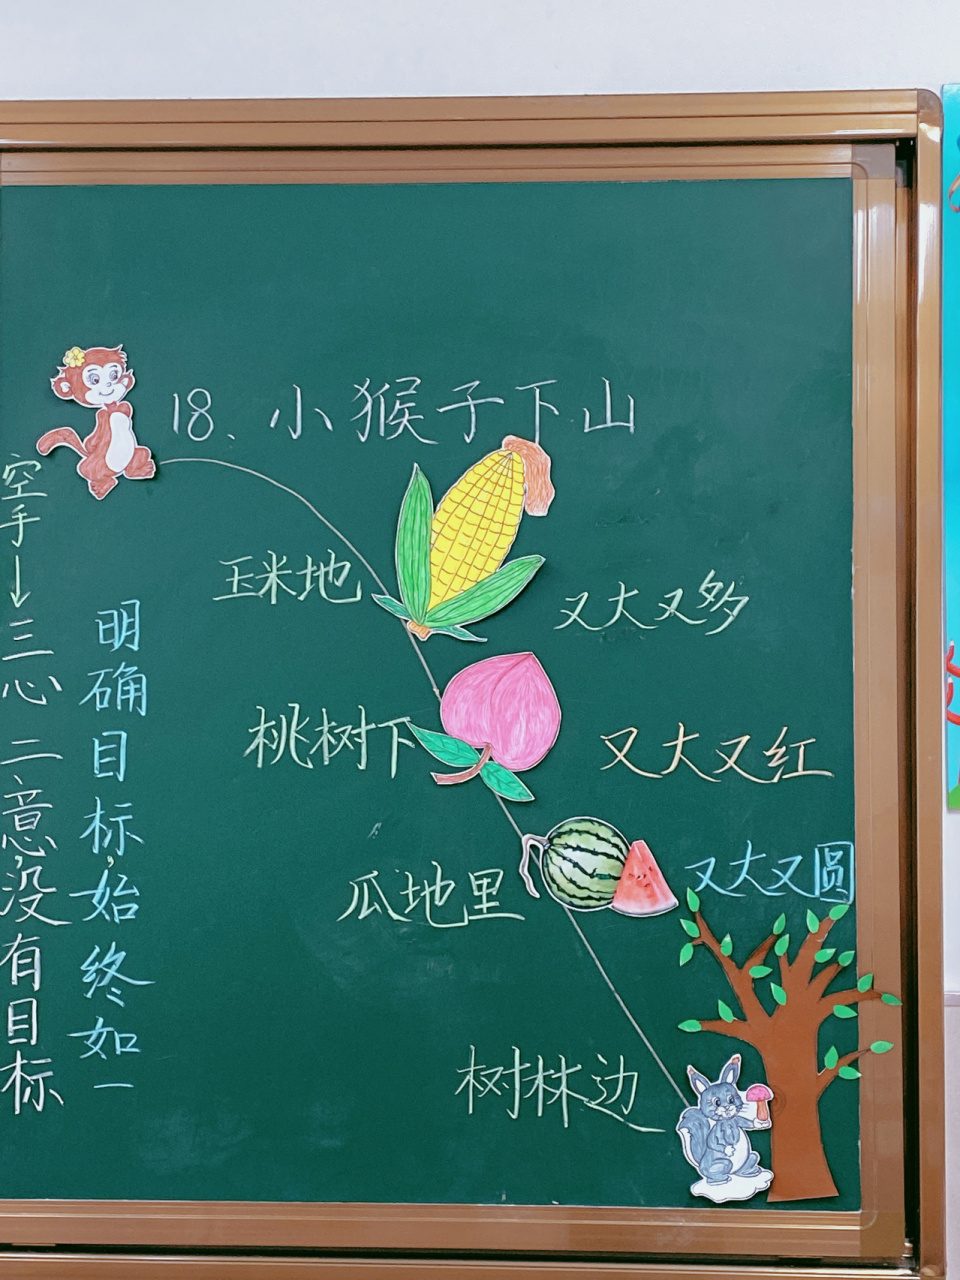 18、小猴子下山
玉米地
又大又多
桃树下
又大又红
瓜地里
又大又圆
树林边
明确目标，始终如一
空手→三心二意，没有目标